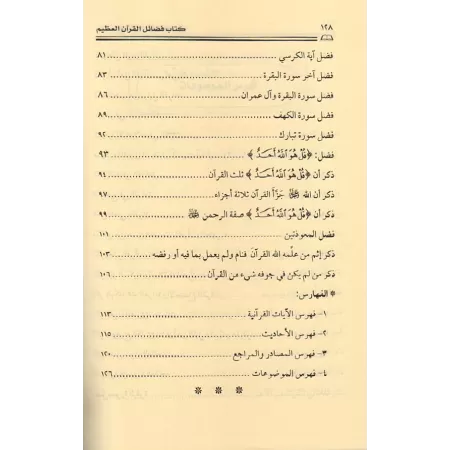 كتاب فضائل القرآن العظيم
١٢٨
فضل آية الكرسي ........ ٨١
فضل آخر سورة البقرة ........ ٨٣
فضل سورة البقرة وآل عمران ........ ٨٦
فضل سورة الكهف ........ ٨٩
فضل سورة تبارك ........ ٩٢
فضل: ﴿قُلْ هُوَ ٱللَّهُ أَحَدٌ﴾ ........ ٩٣
ذكر أن ﴿قُلْ هُوَ ٱللَّهُ أَحَدٌ﴾ ثلث القرآن ........ ٩٤
ذكر أن الله ﷻ جزّأ القرآن ثلاثة أجزاء ........ ٩٧
ذكر أن ﴿قُلْ هُوَ ٱللَّهُ أَحَدٌ﴾ صفة الرحمن ﷻ ........ ٩٩
فضل المعوذتين ........ ١٠١
ذكر إثم من علّمه الله القرآن فنام ولم يعمل بما فيه أو رفضه ........ ١٠٣
ذكر من لم يكن في جوفه شيء من القرآن ........ ١٠٦
* الفهارس:
١- فهرس الآيات القرآنية ........ ١١٣
٢- فهرس الأحاديث ........ ١١٥
٣- فهرس المصادر والمراجع ........ ١٢٠
٤- فهرس الموضوعات ........ ١٢٦
* * *